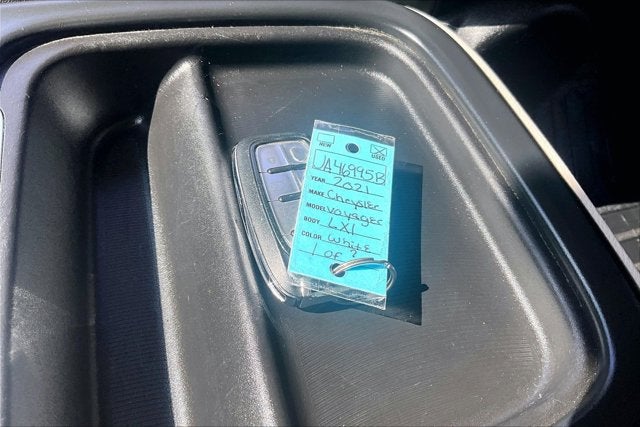 NEW USED
UA46995B
YEAR 2021
MAKE Chrysler
MODEL Voyager
BODY LXI
COLOR White
1 of ?